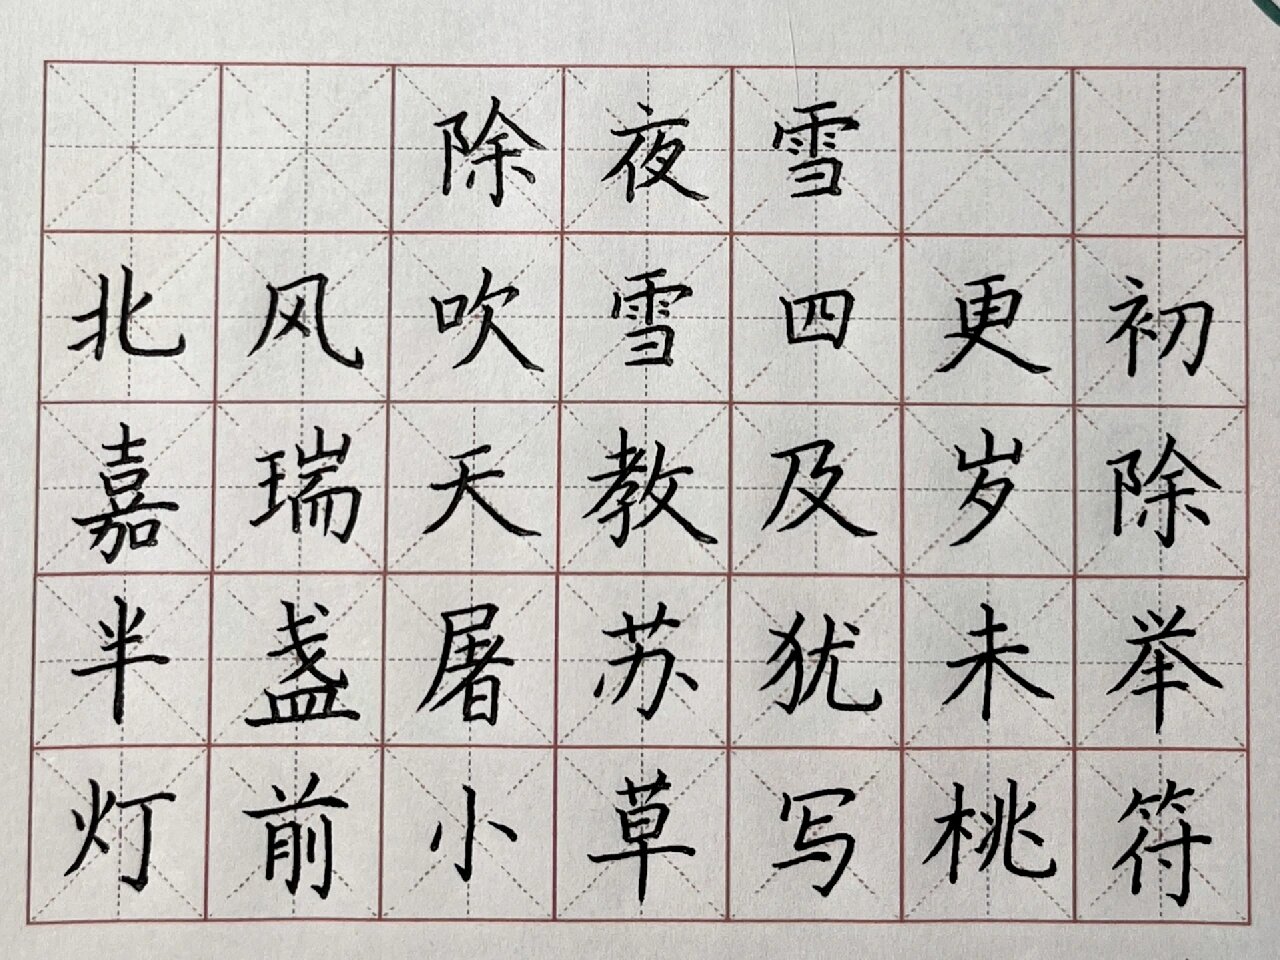 除夜雪
北风吹雪四更初
嘉瑞天教及岁除
半盏屠苏犹未举
灯前小草写桃符